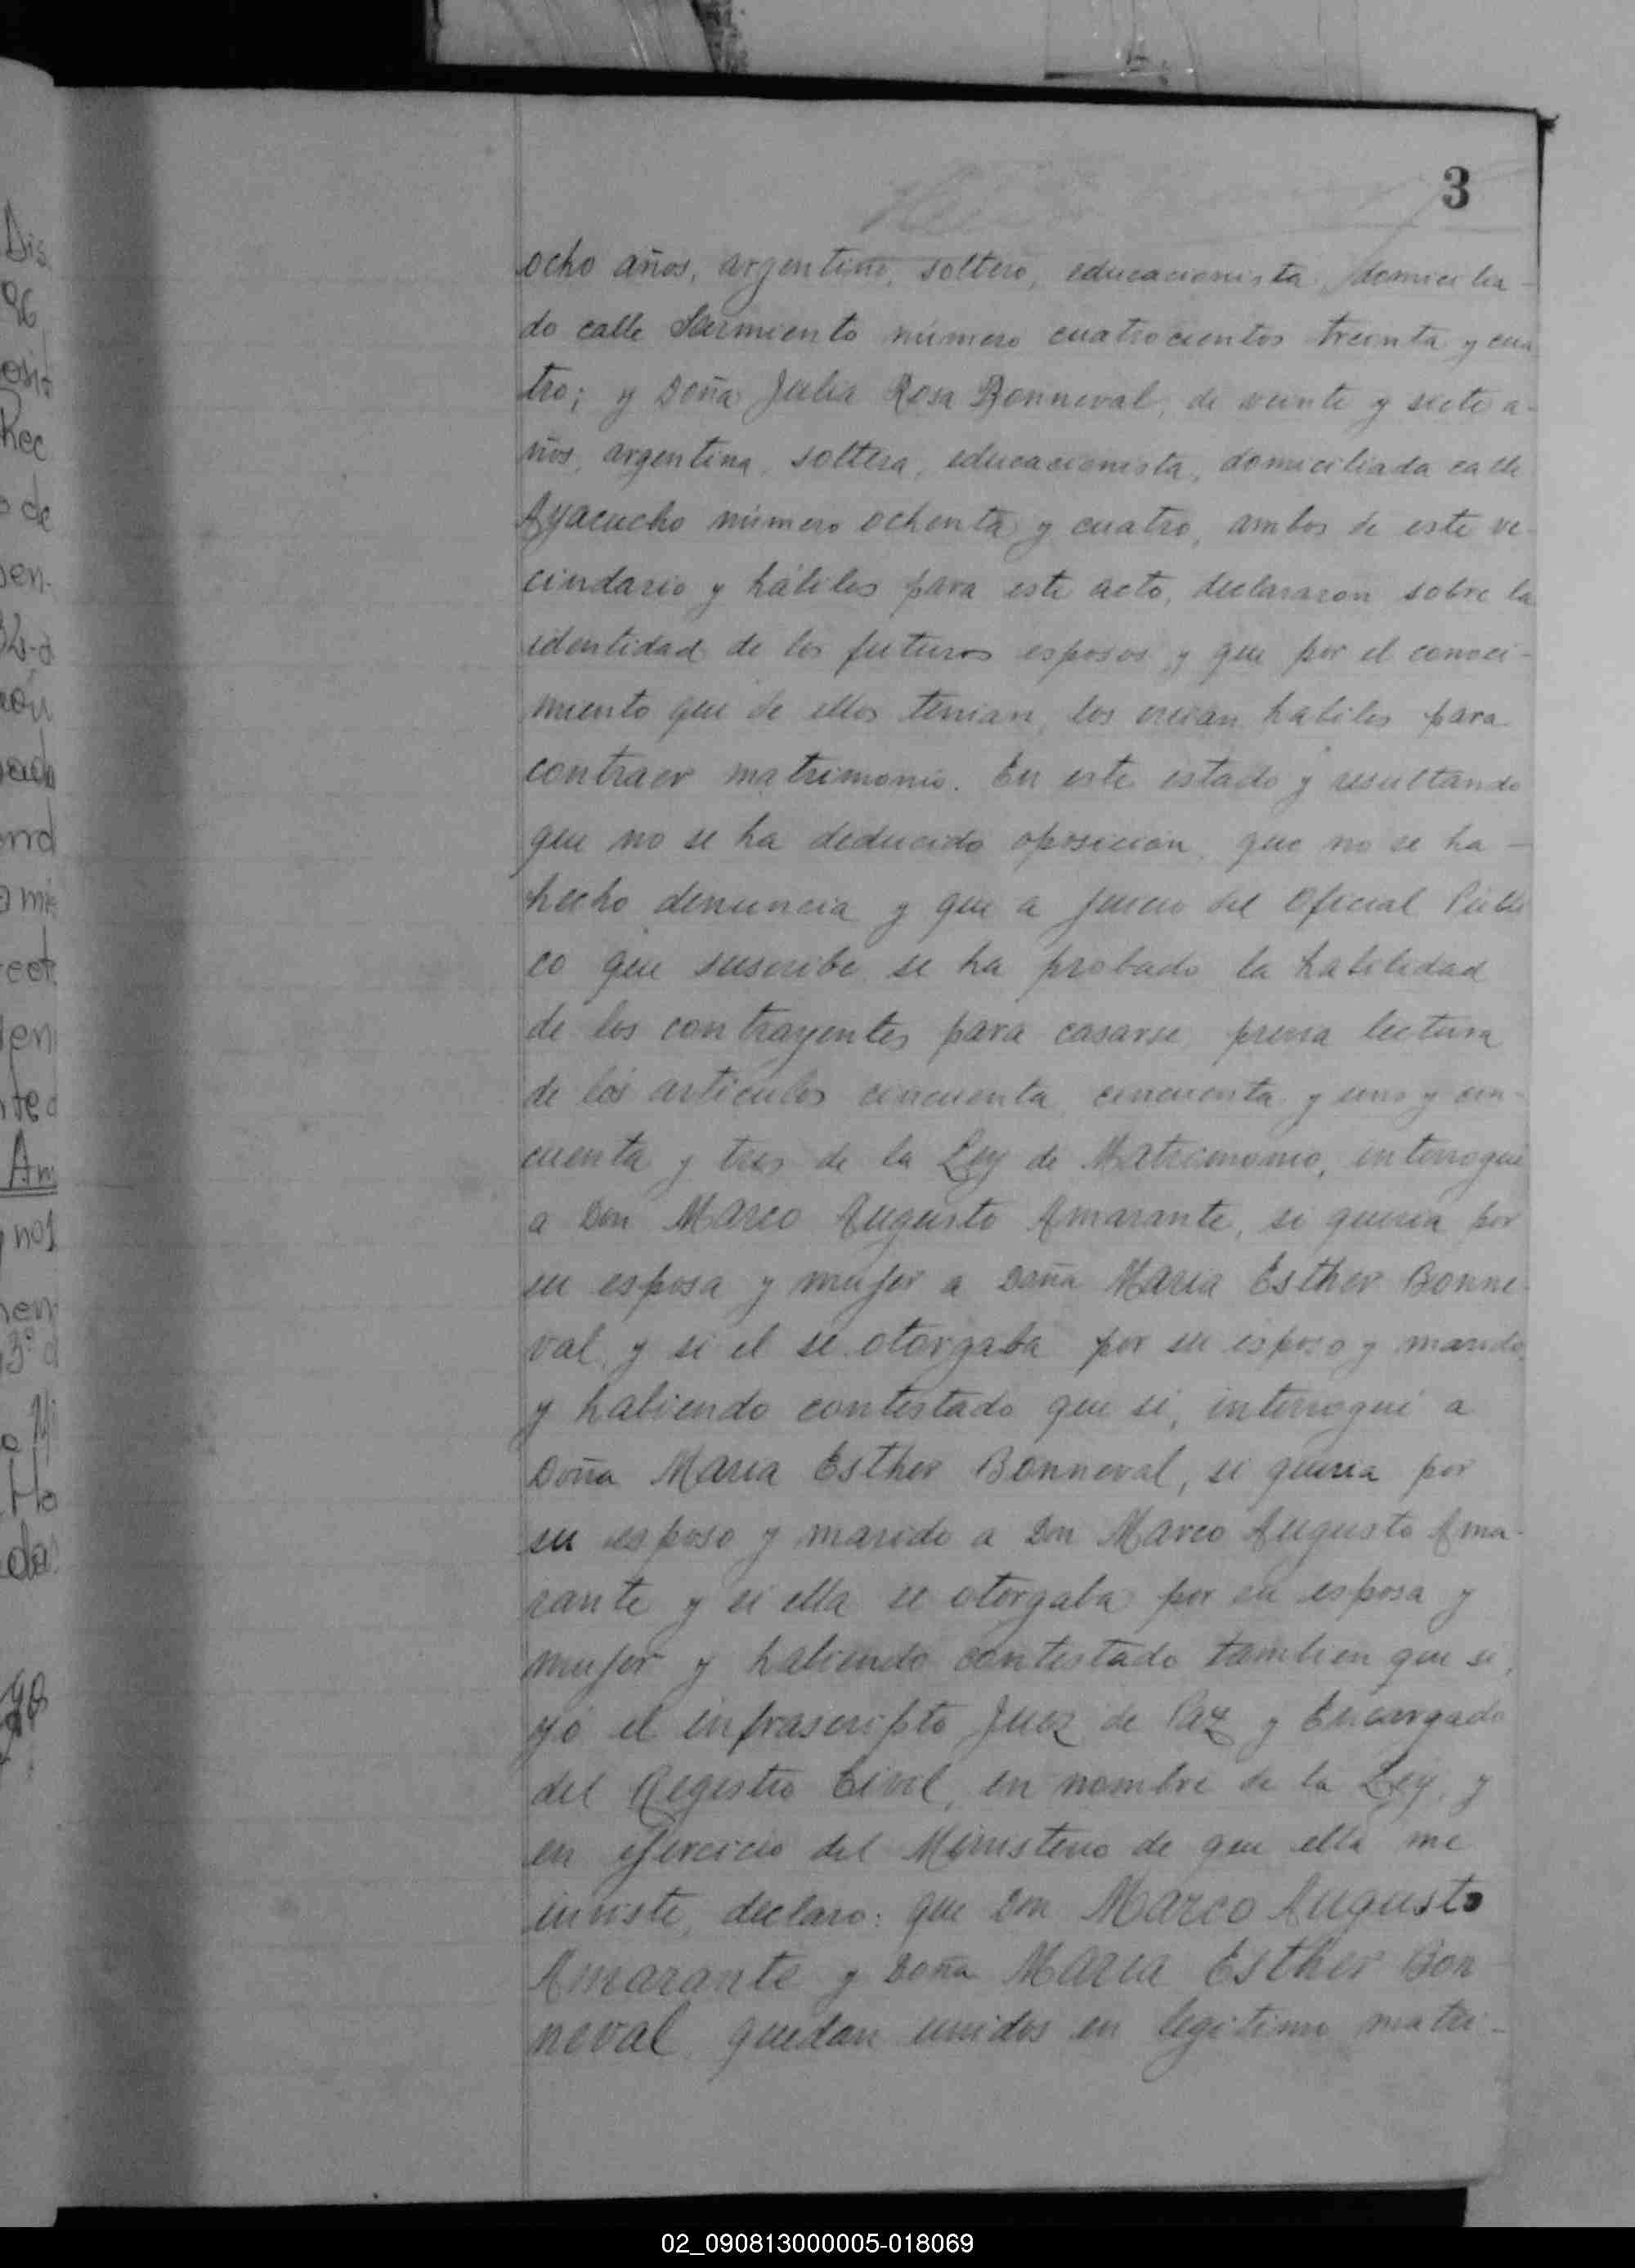 3
ocho años, argentino, soltero, educacionista, domicilia-
do calle Sarmiento número cuatrocientos treinta y cua
tro; y Doña Julia Rosa Bonneval, de veinte y siete a-
ños, argentina, soltera, educacionista, domiciliada calle
Ayacucho número ochenta y cuatro, ambos de este ve-
cindario y hábiles para este acto, declararon sobre la
identidad de los futuros esposos y que por el conoci-
miento que de ellos tenian, los creian habiles para
contraer matrimonio. En este estado y resultando
que no se ha deducido oposicion, que no se ha -
hecho denuncia y que a juicio del Oficial Públi
co que suscribe se ha probado la habilidad
de los contrayentes para casarse, previa lectura
de los articulos cincuenta, cincuenta y uno y cin-
cuenta y tres de la Ley de Matrimonio, interrogué
a Don Marco Augusto Amarante, si queria por
su esposa y mujer a Doña Maria Esther Bonne-
val, y si el se otorgaba por su esposo y marido,
y habiendo contestado que si, interrogué a
Doña Maria Esther Bonneval, si queria por
su esposo y marido a Don Marco Augusto Ama-
rante y si ella se otorgaba por su esposa y
mujer y habiendo contestado tambien que si,
yó el infrascripto Juez de Paz y Encargado
del Registro Civil, en nombre de la Ley, y
en ejercicio del Ministerio de que ella me
inviste, declaro: que Don Marco Augusto
Amarante y Doña Maria Esther Bon
neval, quedan unidos en legitimo matri-
02_090813000005-018069